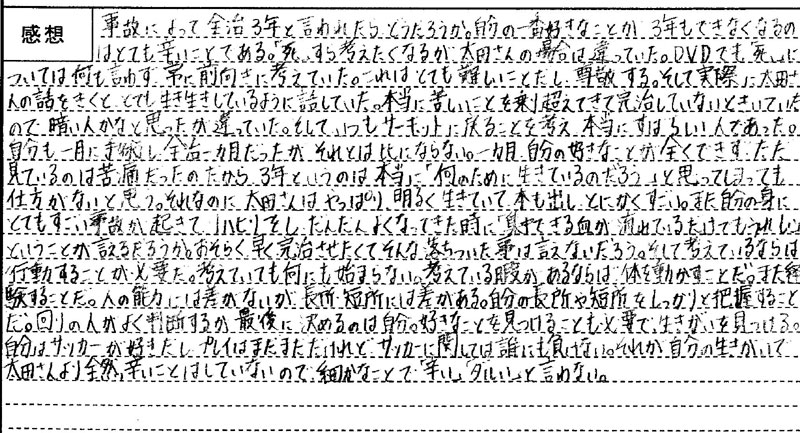 感想
事故によって全治3年と言われたらどうだろうか。自分の一番好きなことが、3年もできなくなるの
はとても辛いことである。「死」すら考えたくなるが、太田さんの場合は違っていた。DVDでも「死」に
ついては何も言わず、常に前向きに考えていた。これはとても難しいことだし、尊敬する。そして実際に太田さ
んの話をきくと、とても生き生きしているように話していた。本当に苦しいことを乗り超えてきて完治していないときいていた
ので暗い人かなと思ったが違っていた。そして、いつもサーキットに戻ることを考え、本当にすばらしい人であった。
自分も一月に手術し全治一カ月だったが、それとは比にならない。一カ月、自分の好きなことが全くできず、ただ
見ているのは苦痛だったのだから、3年というのは本当に「何のために生きているのだろう」と思ってしまっても
仕方がないと思う。それなのに太田さんはやっぱり、明るく生きていて、本も出し、とにかくすごい。また自分の身に
とてもすごい事故が起きて、リハビリをし、だんだんよくなってきた時に「 血が流れているだけでもうれしい」
ということが言えるだろうか。おそらく早く完治させたくてそんな落ちついた事は言えないだろう。そして考えているならば
行動することが必要だ。考えていても何にも始まらない。考えている暇があるならば、体を動かすことだ。また経
験することだ。人の能力には差がないが、長所、短所には差がある。自分の長所や短所をしっかりと把握すること
だ。回りの人がよく判断するが、最後に決めるのは自分。好きなことを見つけることも必要で、生きがいを見つける。
自分はサッカーが好きだし、プレイはまだまだだけれど、サッカーに関しては誰にも負けない。それが自分の生きがいで
太田さんより全然、辛いことはしていないので、細かなことで「辛い」「ダルい」と言わない。